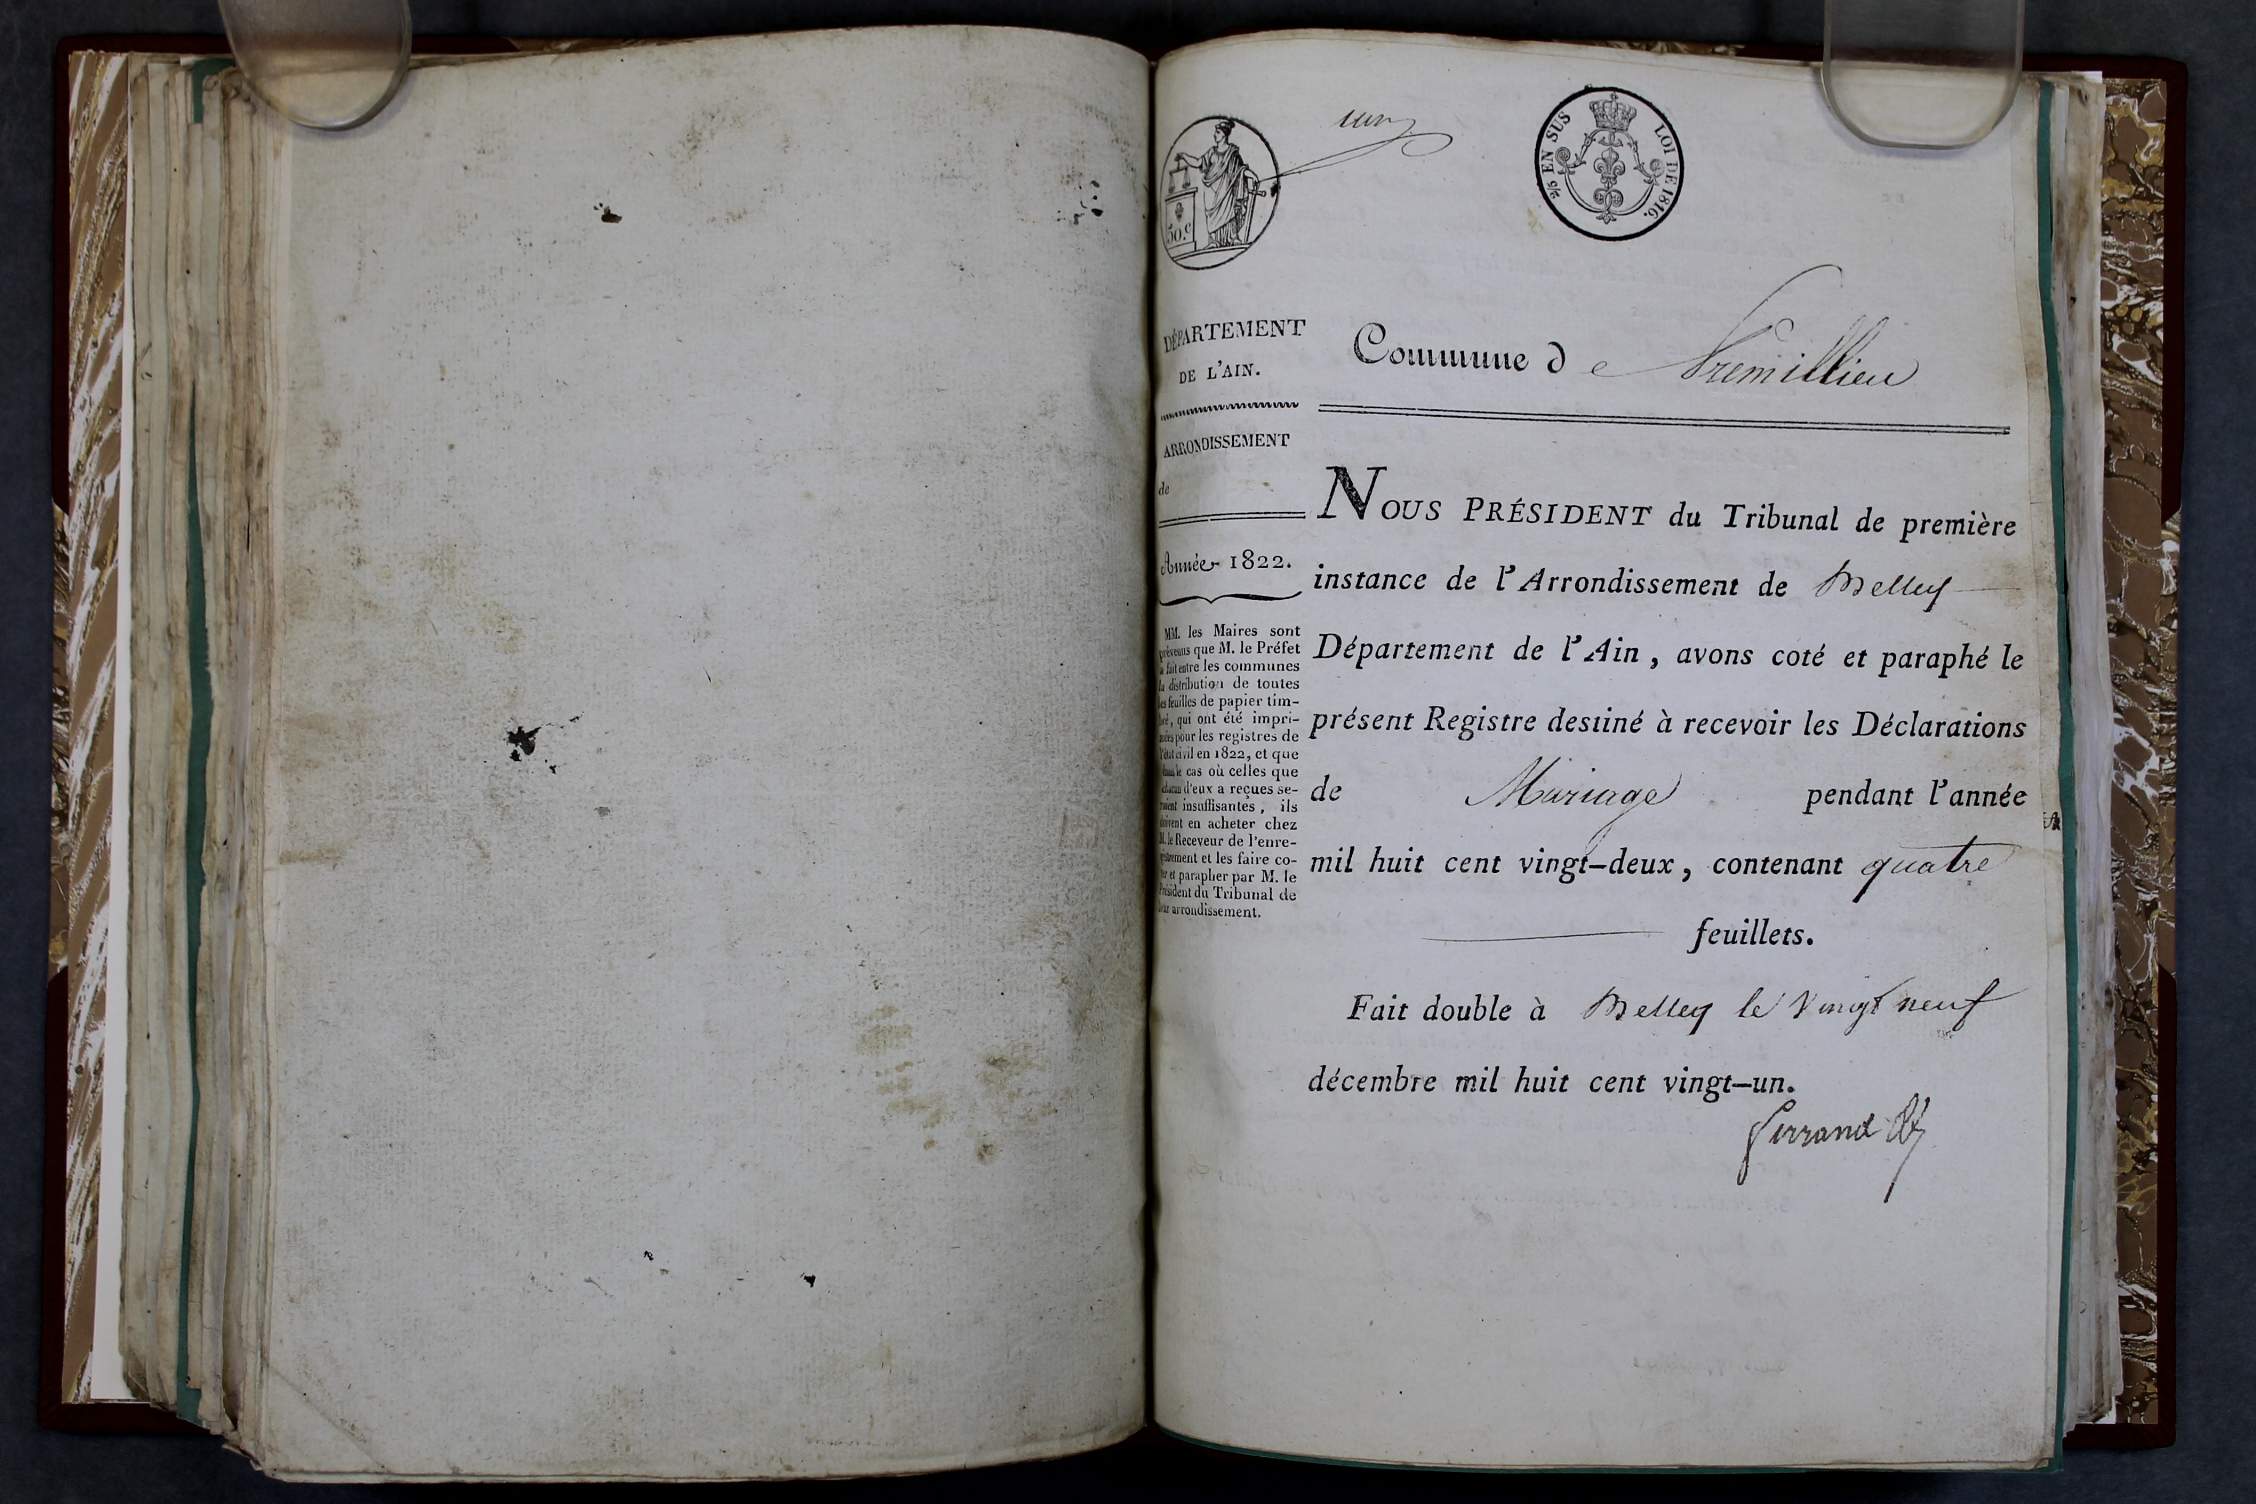 un
50.c
5/2 EN SUS LOI DE 1816.
DÉPARTEMENT
DE L'AIN.
Commune de Premillieu
ARRONDISSEMENT
de
Année 1822.
MM. les Maires sont
prévenus que M. le Préfet
a fait entre les communes
la distribution de toutes
les feuilles de papier tim-
bré, qui ont été impri-
mées pour les registres de
l'état civil en 1822, et que
dans le cas où celles que
chacun d'eux a reçues se-
roient insuffisantes, ils
doivent en acheter chez
M. le Receveur de l'enre-
gistrement et les faire co-
ter et parapher par M. le
Président du Tribunal de
leur arrondissement.
NOUS PRÉSIDENT du Tribunal de première
instance de l'Arrondissement de Belley
Département de l'Ain, avons coté et paraphé le
présent Registre destiné à recevoir les Déclarations
de Mariage pendant l'année
mil huit cent vingt-deux, contenant quatre
feuillets.
Fait double à Belley le vingt neuf
décembre mil huit cent vingt-un.